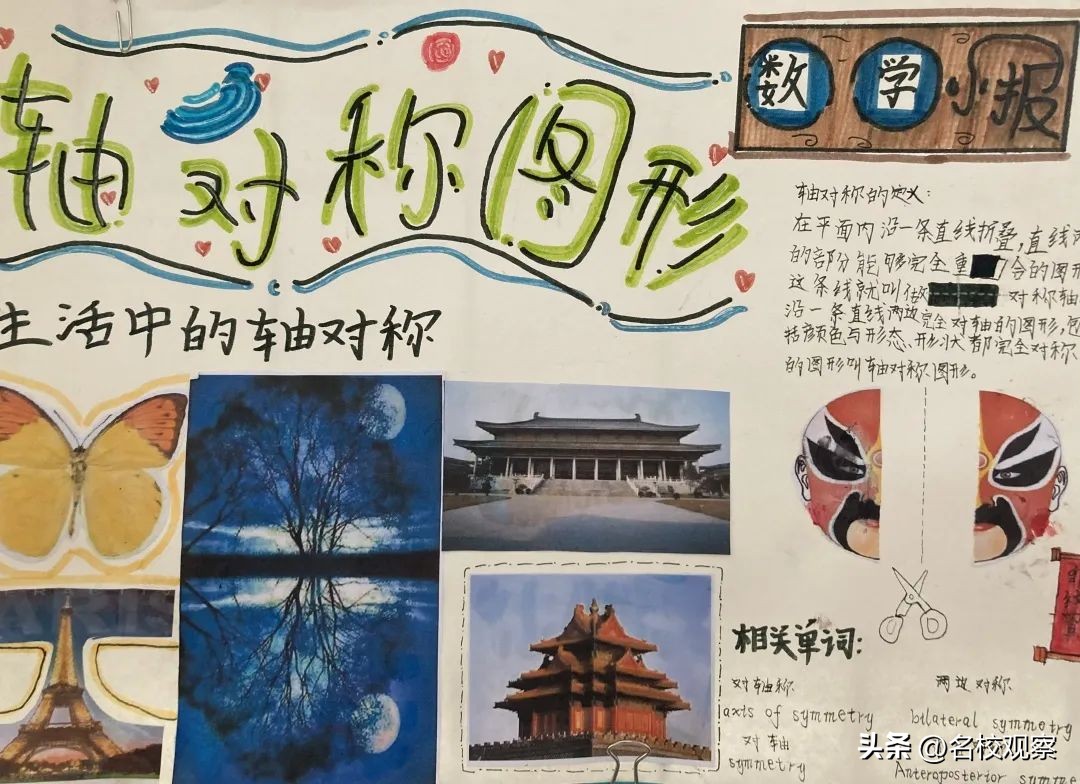 轴对称图形
数学小报
生活中的轴对称
轴对称的定义:
在平面内沿一条直线折叠,直线两
的部分能够完全重 合的图形
这条线就叫做 对称轴
沿一条直线两边完全对轴的图形,包
括颜色与形态、形状大都完全对称
的图形叫轴对称图形。
PARIS
相关单词:
对轴称
两边对称
axis of symmetry
bilateral symmetry
对轴
symmetry
Anteroposterior symme
头条 @名校观察